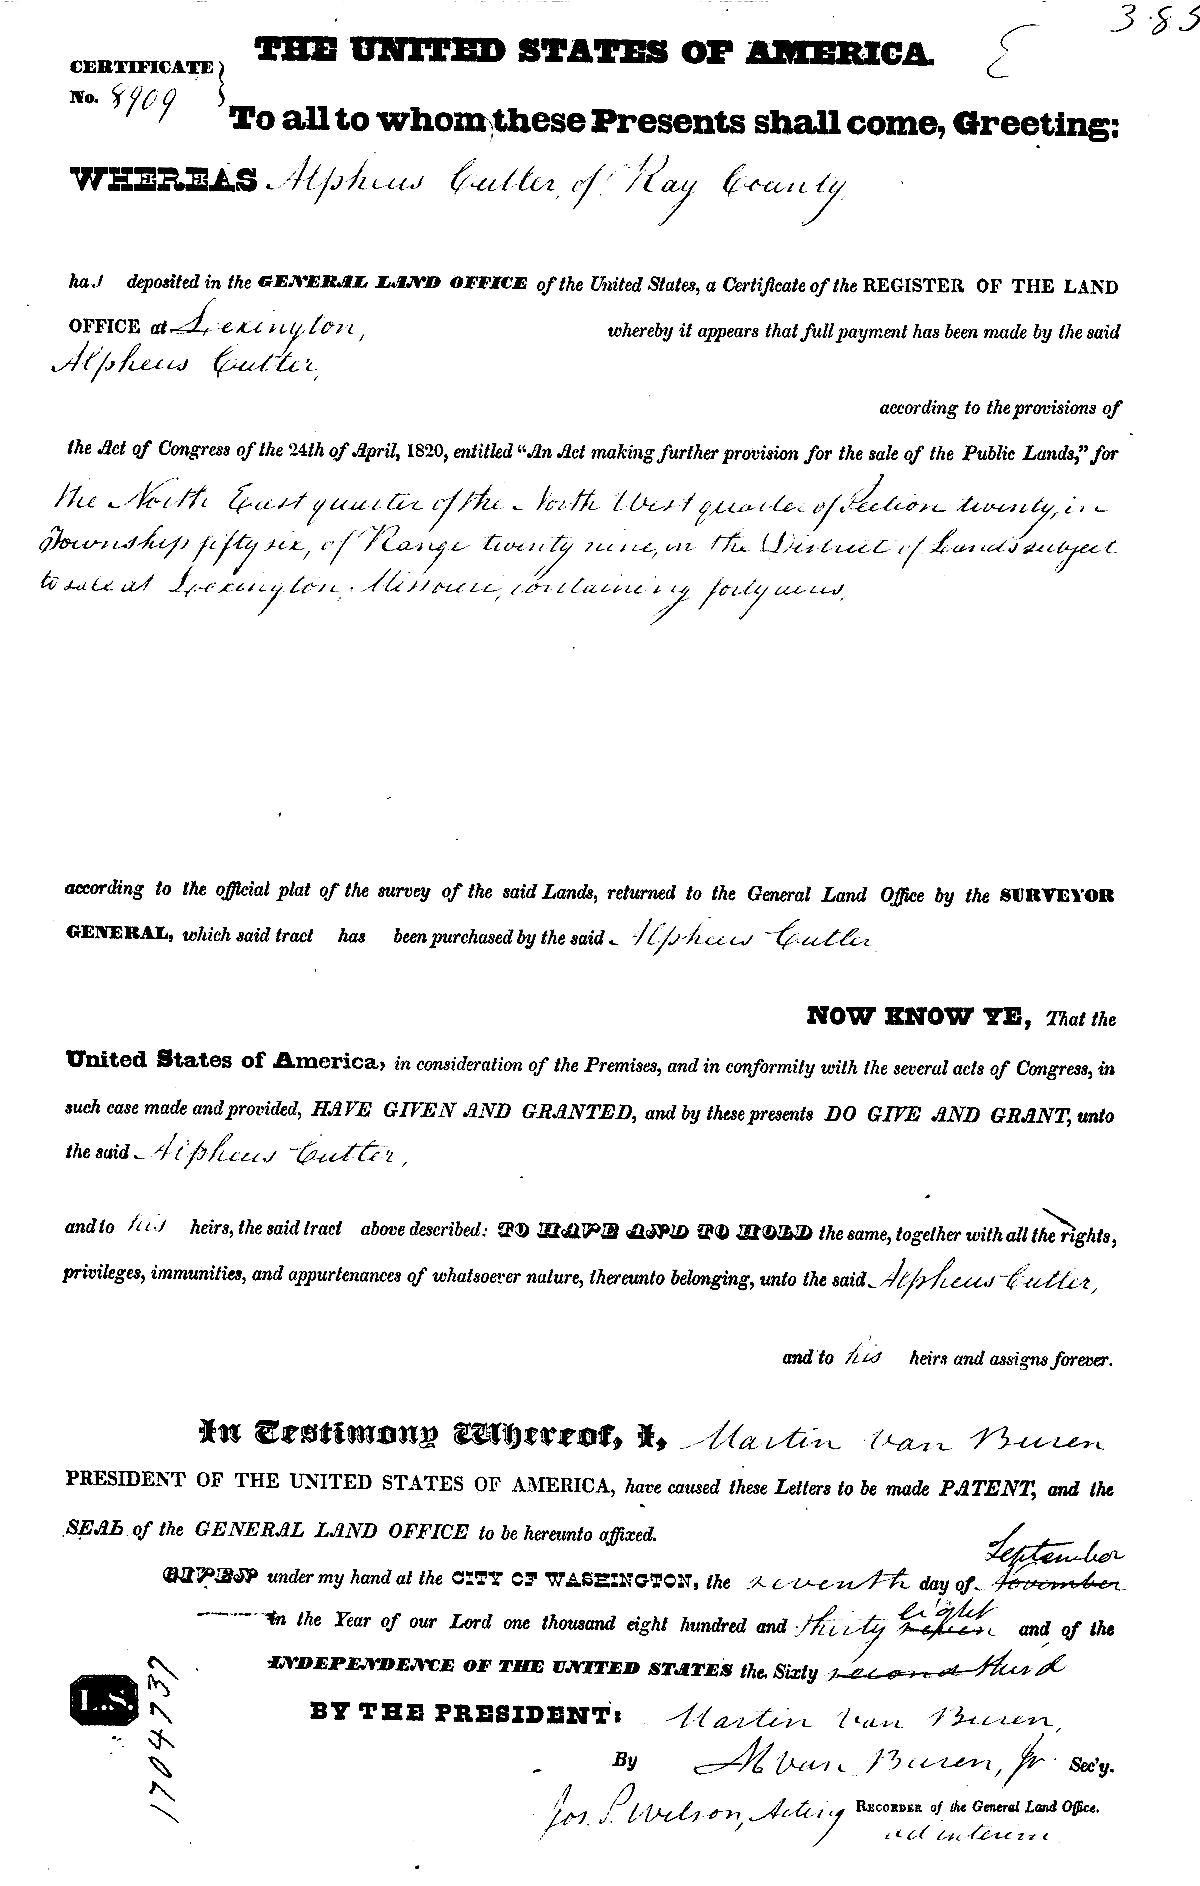 383
THE UNITED STATES OF AMERICA.
E
CERTIFICATE
No. 8909
To all to whom these Presents shall come, Greeting:
WHEREAS Alpheus Cutler, of Ray County,
has deposited in the GENERAL LAND OFFICE of the United States, a Certificate of the REGISTER OF THE LAND
OFFICE at Lexington, whereby it appears that full payment has been made by the said
Alpheus Cutler,
according to the provisions of
the Act of Congress of the 24th of April, 1820, entitled “An Act making further provision for the sale of the Public Lands,” for
the North East quarter of the North West quarter of Section twenty, in
Township fifty six, of Range twenty nine, in the District of Lands subject
to sale at Lexington, Missouri, containing forty acres,
according to the official plat of the survey of the said Lands, returned to the General Land Office by the SURVEYOR
GENERAL, which said tract has been purchased by the said Alpheus Cutler
NOW KNOW YE, That the
United States of America, in consideration of the Premises, and in conformity with the several acts of Congress, in
such case made and provided, HAVE GIVEN AND GRANTED, and by these presents DO GIVE AND GRANT, unto
the said Alpheus Cutler,
and to his heirs, the said tract above described: TO HAVE AND TO HOLD the same, together with all the rights,
privileges, immunities, and appurtenances of whatsoever nature, thereunto belonging, unto the said Alpheus Cutler,
and to his heirs and assigns forever.
In Testimony Whereof, I, Martin Van Buren
PRESIDENT OF THE UNITED STATES OF AMERICA, have caused these Letters to be made PATENT, and the
SEAL of the GENERAL LAND OFFICE to be hereunto affixed.
September
GIVEN under my hand at the CITY OF WASHINGTON, the seventh day of November
eight
in the Year of our Lord one thousand eight hundred and thirty seven and of the
INDEPENDENCE OF THE UNITED STATES the Sixty second third
L.S.
BY THE PRESIDENT: Martin Van Buren,
By M Van Buren, Jr. Sec'y.
Jos. S. Wilson, Acting RECORDER of the General Land Office.
ad interim
1704737